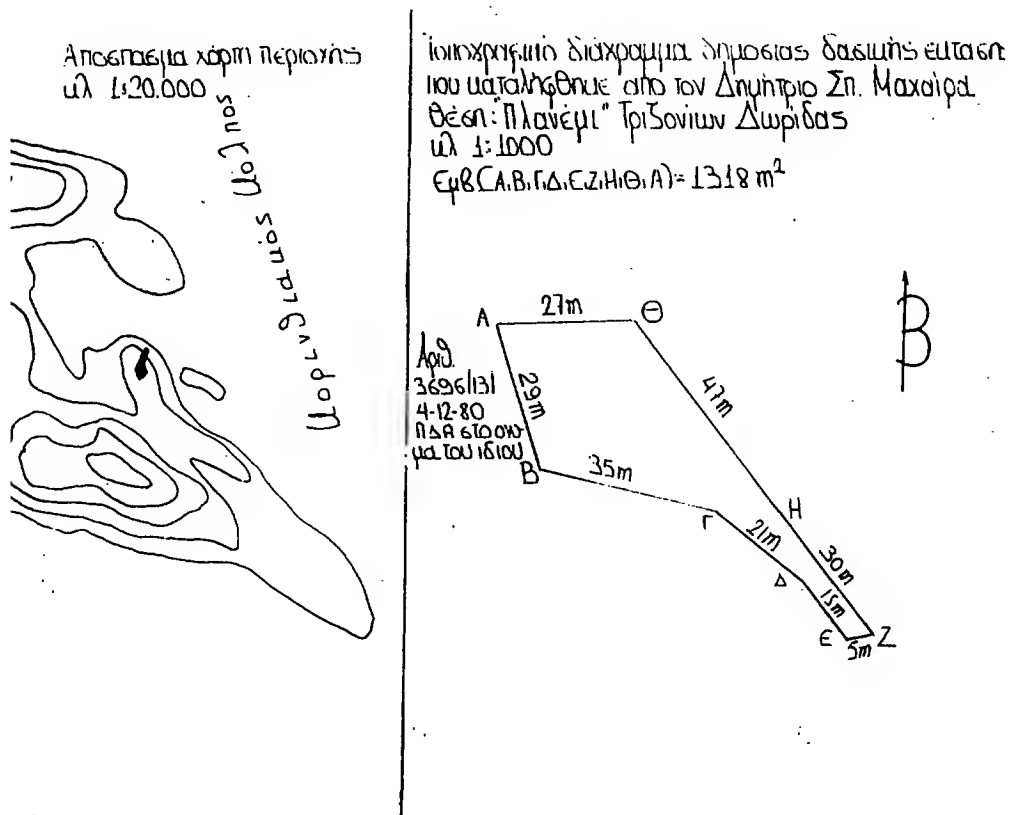 Αποσπασμα χάρτη περιοχής
κλ 1:20.000
Κορινθιακός Κόλπος
Τοπογραφικό διάγραμμα δημοσιας δασικής εκτασης
που καταλήφθηκε από τον Δημήτριο Σπ. Μαχαίρα
Θέση: "Πλανέμι" Τριζονίων Δωρίδας
κλ 1:1000
Εμβ(Α,Β,Γ,Δ,Ε,Ζ,Η,Θ,Α)= 1318 m²
Α
27m
Θ
Β
Αριθ.
3696/131
4-12-80
ΠΔΑ στο ονο
μα του ιδιου
29m
47m
Β
35m
Γ
Η
21m
30m
Δ
15m
Ε
5m
Ζ